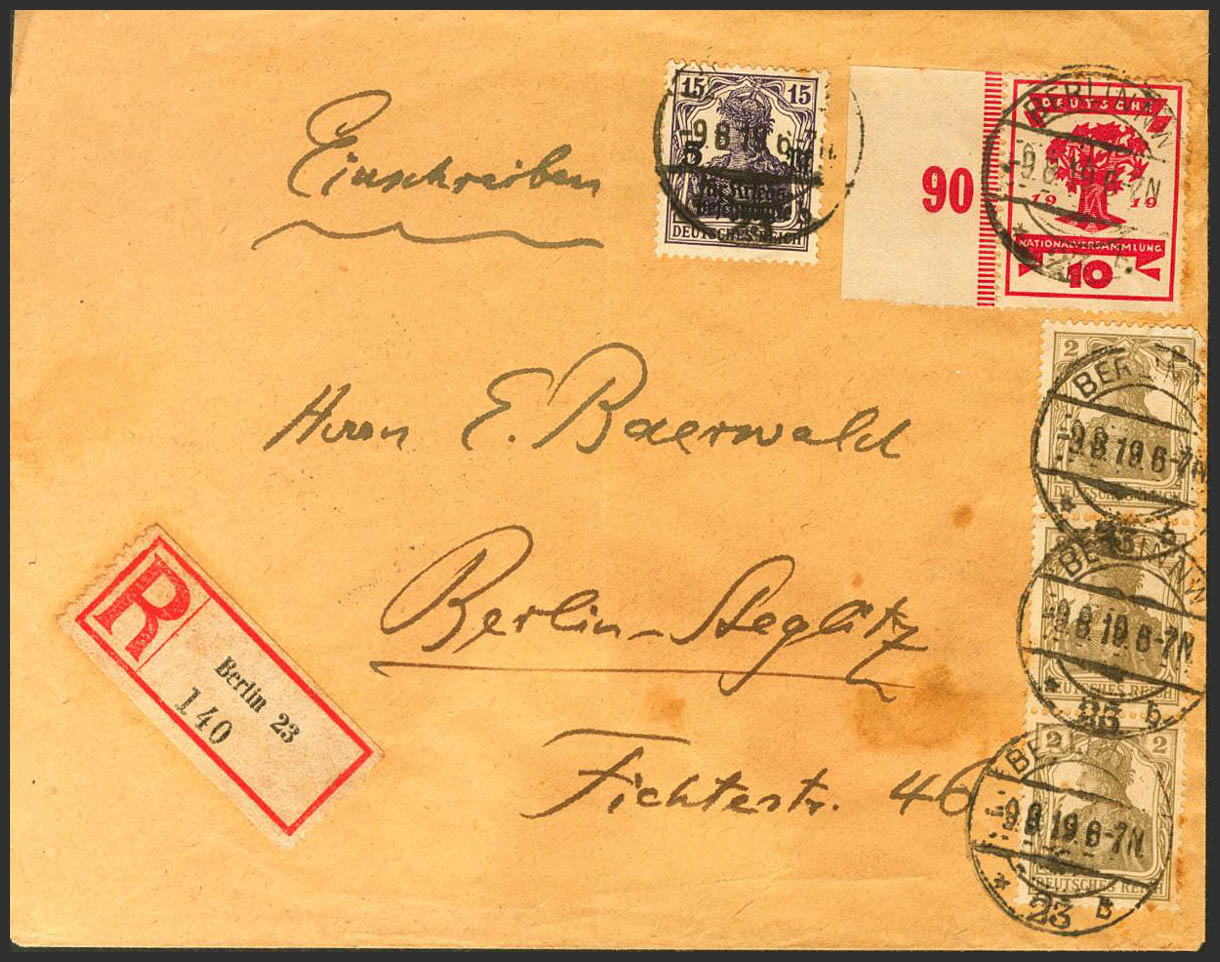 Einschreiben
15 15
-9.8.19.6-7N.
5
Für Kriegs-
DEUTSCHES REICH
90
BERLIN NW
DEUTSCHE
-9.8.19.6-7N
19 19
NATIONALVERSAMMLUNG
10
Herrn E. Baerwald
Berlin-Steglitz
Fichtestr. 46
R
Berlin 23
140
2
BERLIN
-9.8.19.6-7N
DEUTSCHES REICH
b
BERLIN NW
-9.8.19.6-7N
DEUTSCHES REICH
* 23 b
2 2
-9.8.19.6-7N.
DEUTSCHES REICH
* 23 b